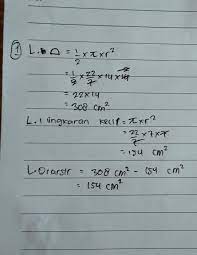 ① L. ⌓ = 1/2 × π × r²
= 1/2 × 22/7 × 14 × 14
= 22 × 14
= 308 cm²
L. lingkaran kecil = π × r²
= 22/7 × 7 × 7
= 154 cm²
L. Diarsir = 308 cm² - 154 cm²
= 154 cm²